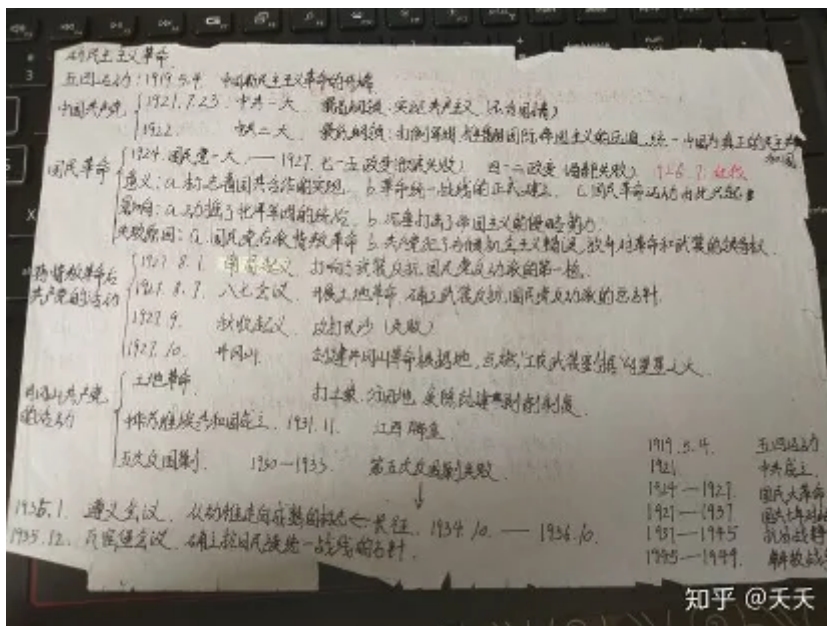 新民主主义革命
五四运动:1919.5.4 中国新民主主义革命的开端
中国共产党
1921.7.23 中共一大 最高纲领:实现共产主义(不合国情)
1922. 中共二大 最低纲领:打倒军阀,推翻国际帝国主义的压迫,统一中国为真正的民主共和国
国民革命
1924.国民党一大 —— 1927.七一五政变(彻底失败) 四一二政变(局部失败) 1926.7.北伐
意义:a.标志着国共合作的实现 b.革命统一战线的正式建立 c.国民革命运动由此兴起
影响:a.动摇了北洋军阀的统治 b.沉重打击了帝国主义的侵略势力
失败原因:a.国民党右派叛变革命 b.共产党犯了右倾机会主义错误,放弃对革命和武装的领导权
叛变革命后
共产党的活动
1927.8.1. 南昌起义 打响了武装反抗国民党反动派的第一枪
1927.8.7. 八七会议 开展土地革命,确立武装反抗国民党反动派的总方针
1927.9. 秋收起义 攻打长沙(失败)
1927.10. 井冈山 创建井冈山革命根据地,点燃"工农武装割据"的星星之火
井冈山共产党
的活动
土地革命 打土豪,分田地,废除封建剥削制度
中华苏维埃共和国成立 1931.11. 江西瑞金
五次反围剿 1930—1933. 第五次反围剿失败
↓
1935.1. 遵义会议 从幼稚走向成熟的标志 ← 长征 1934.10. —— 1936.10.
1935.12. 瓦窑堡会议 确立抗日民族统一战线的方针
1919.5.4. 五四运动
1921. 中共成立
1924—1927. 国民大革命
1927—1937 国共十年对
1937—1945 抗日战争
1945—1949. 解放战
知乎 @天天